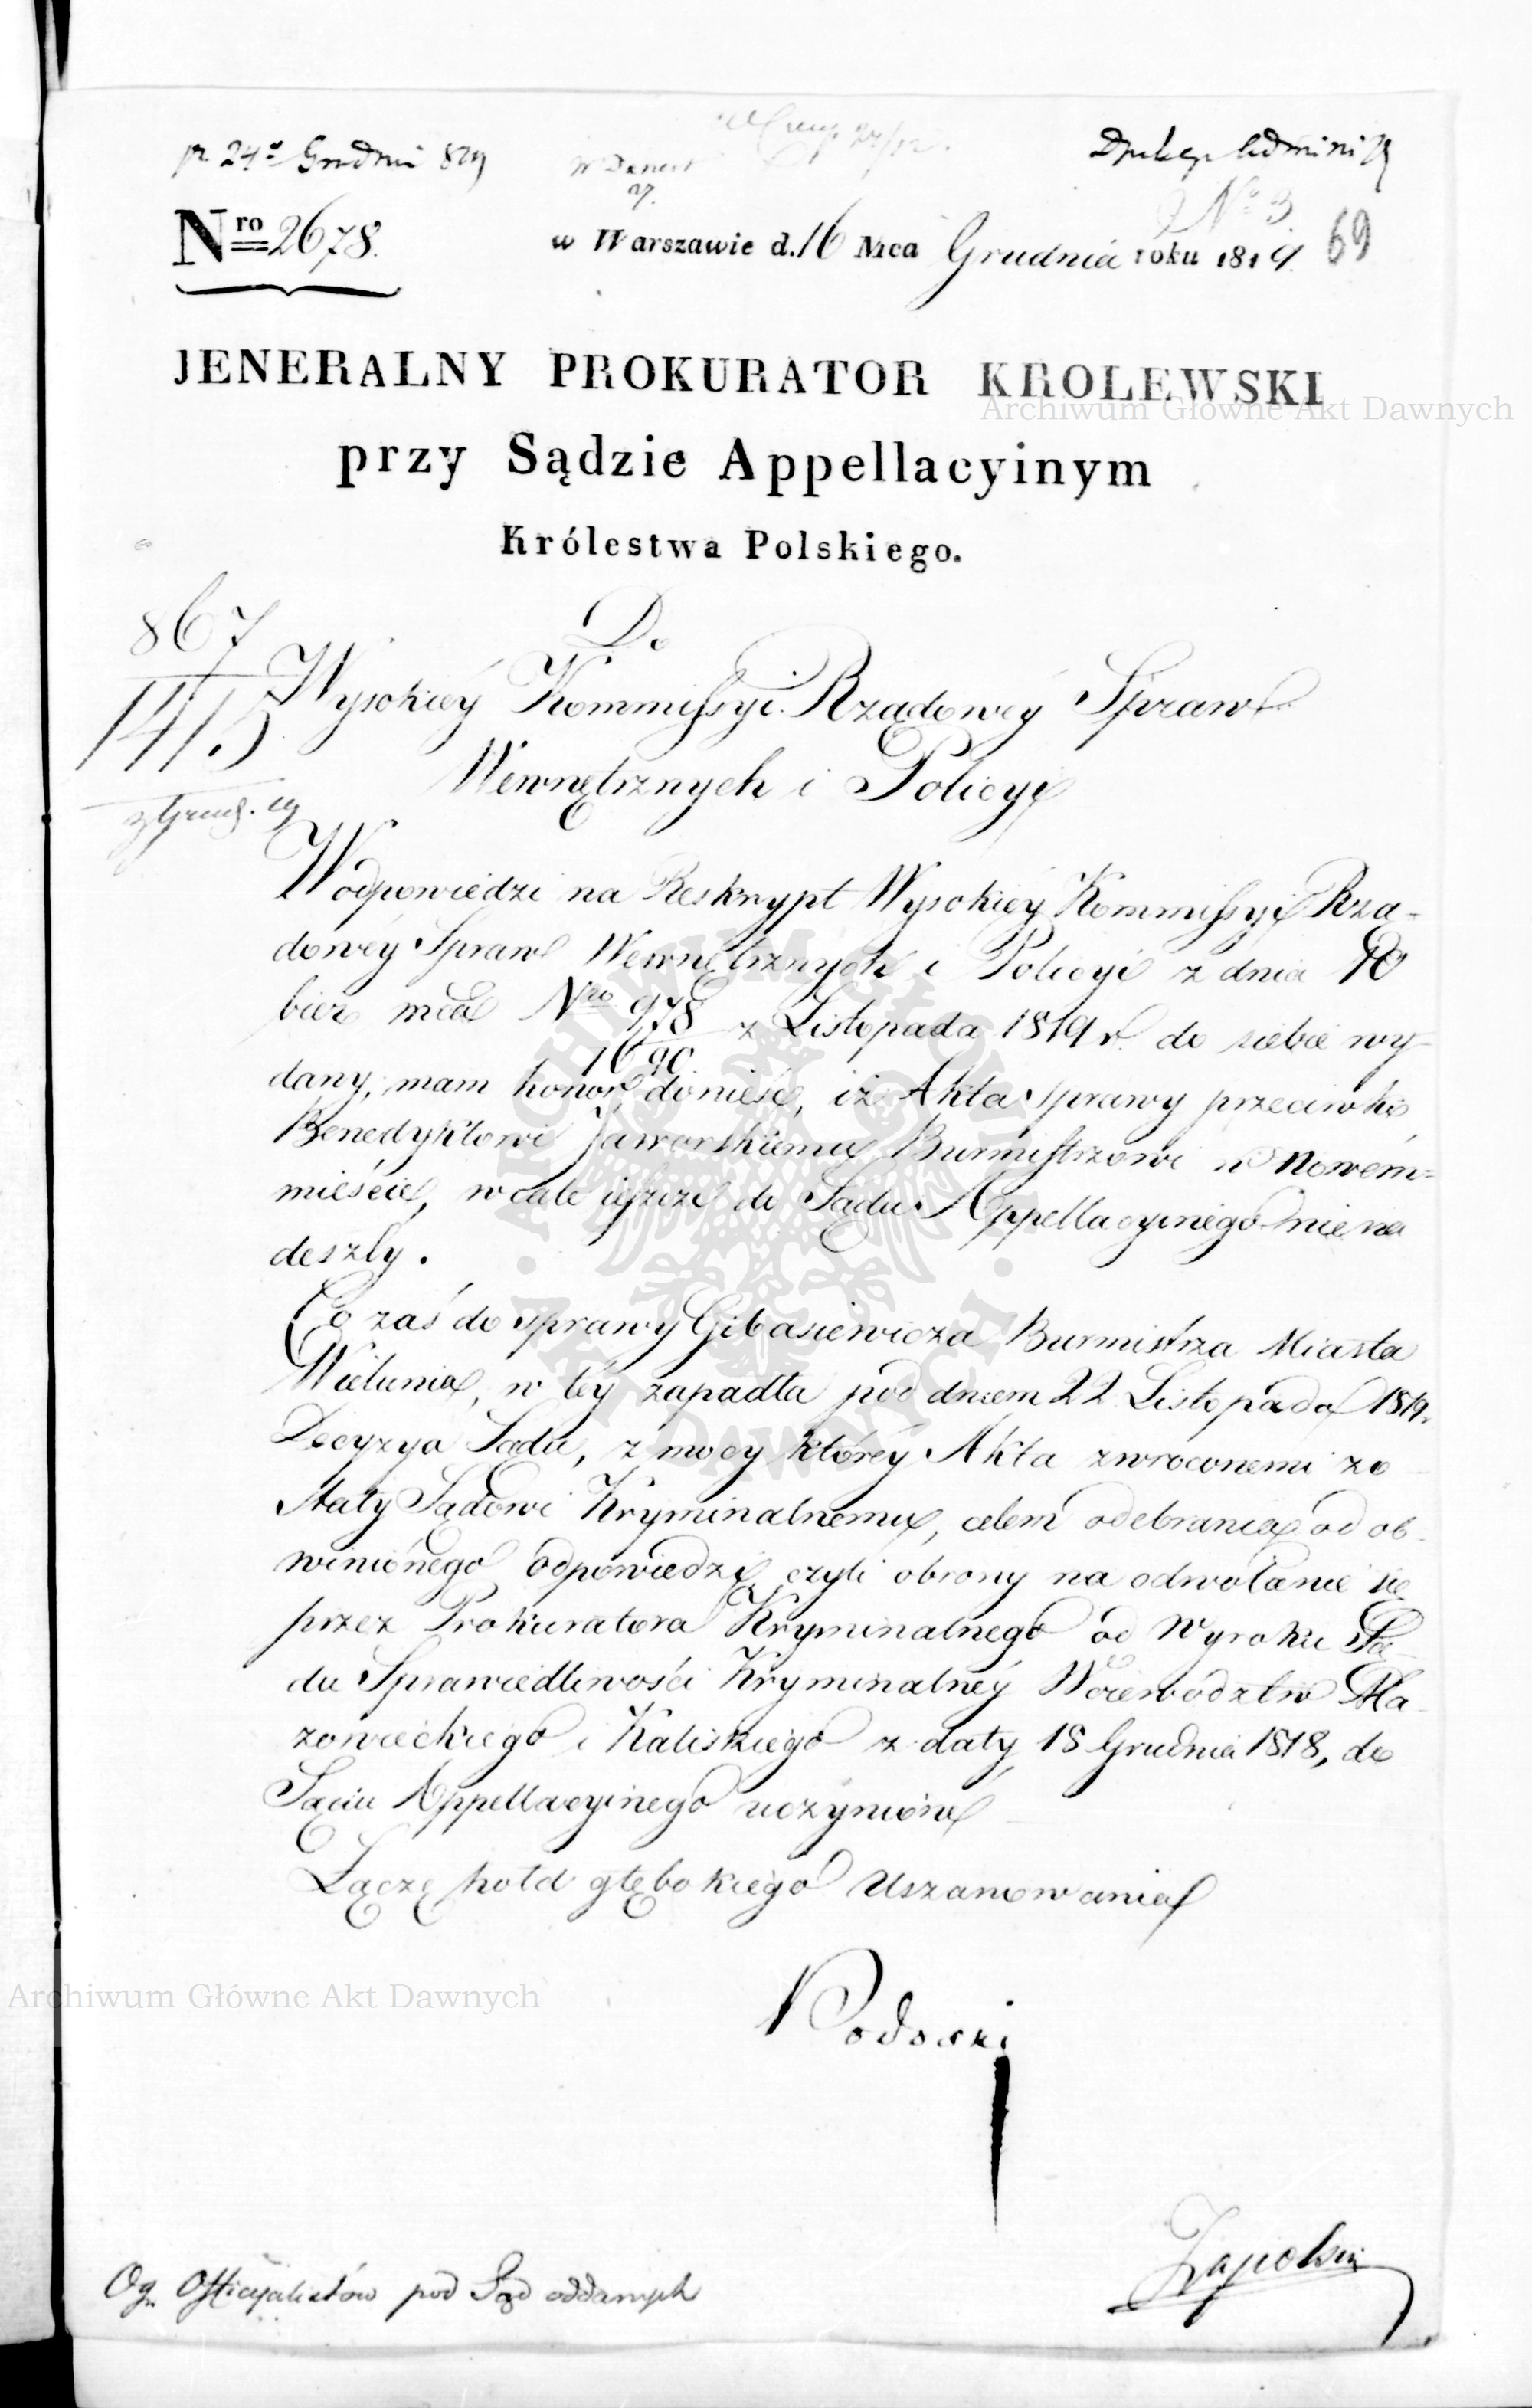 pr. 24º Grudnia 819
27/12.
W Denert
27.
Nº 3
69
Nro 2678.
w Warszawie d. 16 Mca Grudnia roku 1819.
JENERALNY PROKURATOR KROLEWSKI
przy Sądzie Appellacyinym
Królestwa Polskiego.
867
1415
z Grud. 19
Do
Wysokiey Kommissyi Rządowey Spraw
Wewnętrznych i Policyi
W odpowiedzi na Reskrypt Wysokiey Kommissyi Rzą-
dowey Spraw Wewnętrznych i Policyi z dnia 10
bież mca Nro 978/1690 z Listopada 1819 r. do siebie wy-
dany, mam honor donieść, iż Akta sprawy przeciwko
Benedyktowi Jaworskiemu Burmistrzowi w Nowém=
mieście, wcale ieszcze do Sądu Appellacyinego nie na
deszły.
Co zaś do sprawy Gibasiewicza Burmistrza Miasta
Wielunia, w tey zapadła pod dniem 22 Listopada 1819.
Decyzya Sądu, z mocy którey Akta zwroconemi zo
stały Sądowi Kryminalnemu, celem odebrania od ob-
winionego odpowiedzi czyli obrony na odwołanie się
przez Prokuratora Kryminalnego od Wyroku Są-
du Sprawiedliwości Kryminalney Woiewodztw Ma-
zowieckiego i Kaliskiego z daty 18 Grudnia 1818, do
Sądu Appellacyinego uczynione
Łączę hołd głębokiego Uszanowania
Podoski
Zapolski
Og. Officyalistów pod Sąd oddanych
Archiwum Główne Akt Dawnych
Archiwum Główne Akt Dawnych
ARCHIWUM GŁÓWNE AKT DAWNYCH